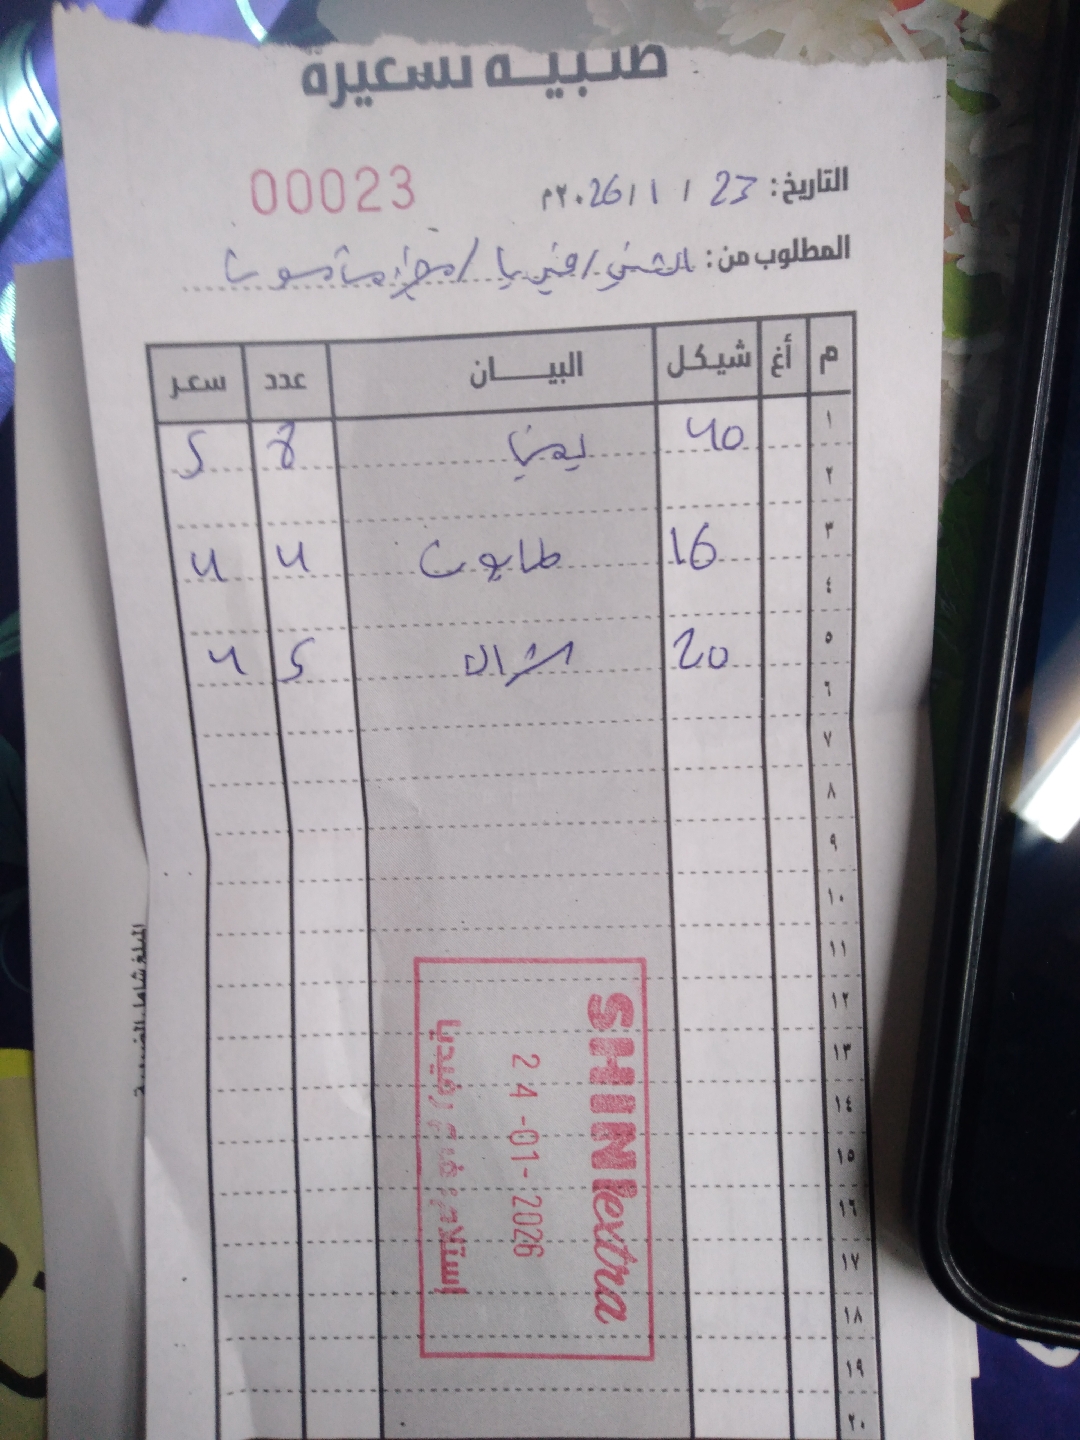 طلبية تسعيرة
00023
التاريخ: 23 / 1 / 2026م
المطلوب من:
م أغ شيكل البيــــان عدد سعر
١ 40 8 5
٢
٣ 16 طابون 4 4
٤
٥ 20 5 4
٦
٧
٨
٩
١٠
١١
١٢
١٣
١٤
١٥
١٦
١٧
١٨
١٩
٢٠
SHINIextra
24-01-2026
إستلام: فرع رفيديا